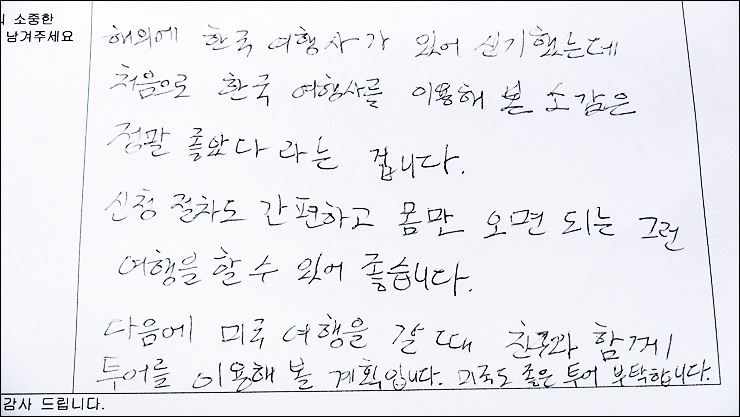 소중한
남겨주세요
해외에 한국 여행사가 있어 신기했는데
처음으로 한국 여행사를 이용해 본 소감은
정말 좋았다 라는 겁니다.
신청 절차도 간편하고 몸만 오면 되는 그런
여행을 할 수 있어 좋습니다.
다음에 미국 여행을 갈 때 친구와 함께
투어를 이용해 볼 계획입니다. 미국도 좋은 투어 부탁합니다.
감사 드립니다.